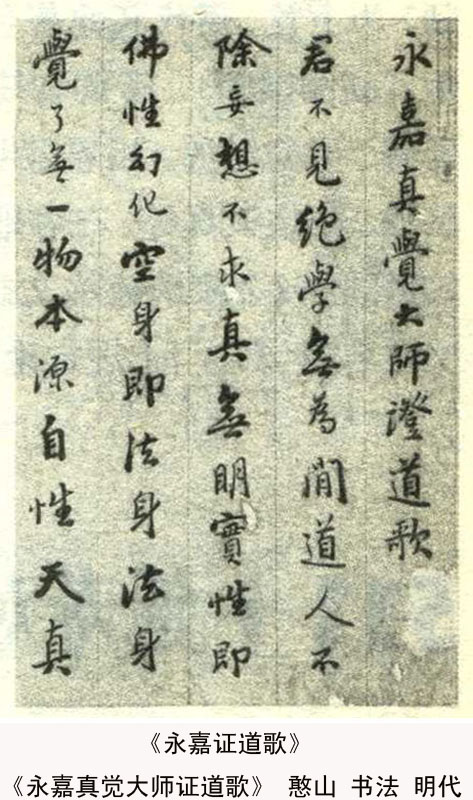 永嘉真覺大師證道歌
君不見絕學無為閒道人不
除妄想不求真無明實性即
佛性幻化空身即法身法身
覺了無一物本源自性天真
《永嘉证道歌》
《永嘉真觉大师证道歌》 憨山 书法 明代